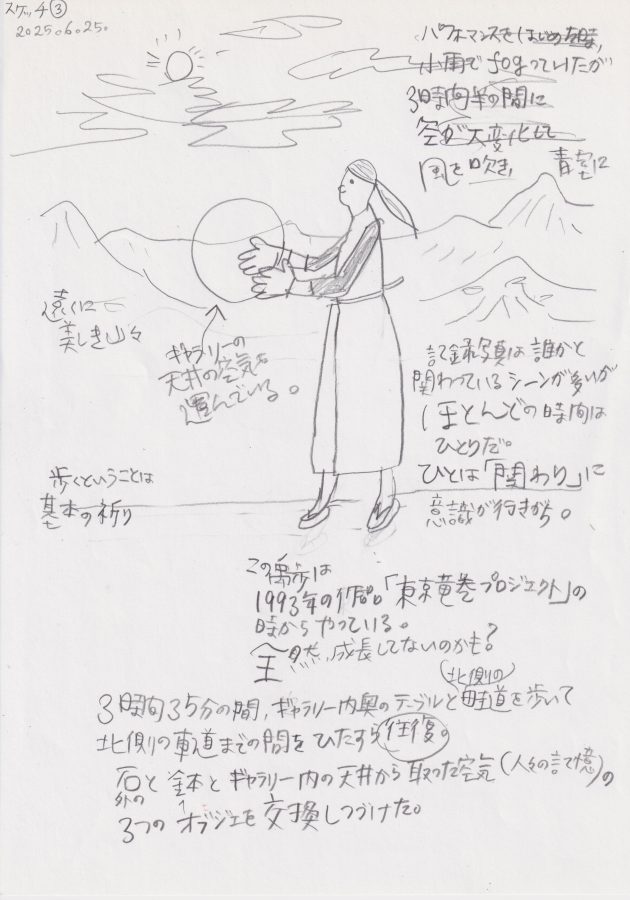 スケッチ③
2025.6.25.
パフォマンスをはじめた時、
小雨でfogっていたが
3時間半の間に
空が大変化して
風を吹き、青空に
遠くに
美しき山々
ギャラリーの
天井の空気を
運んでいる。
記録写真は誰かと
関わっているシーンが多いが
ほとんどの時間は
ひとりだ。
ひとは「関わり」に
意識が行きがち。
歩くということは
基本の祈り
この禹歩は
1993年の作品「東京竜巻プロジェクト」の
時からやっている。
全然、成長してないのかも?
3時間35分の間、ギャラリー内奥のテーブルと(北側の)畦道を歩いて
北側の車道までの間をひたすら往復。
外の石と金本とギャラリー内の天井から取った空気(人々の記憶)の
3つのオブジェを交換しつづけた。